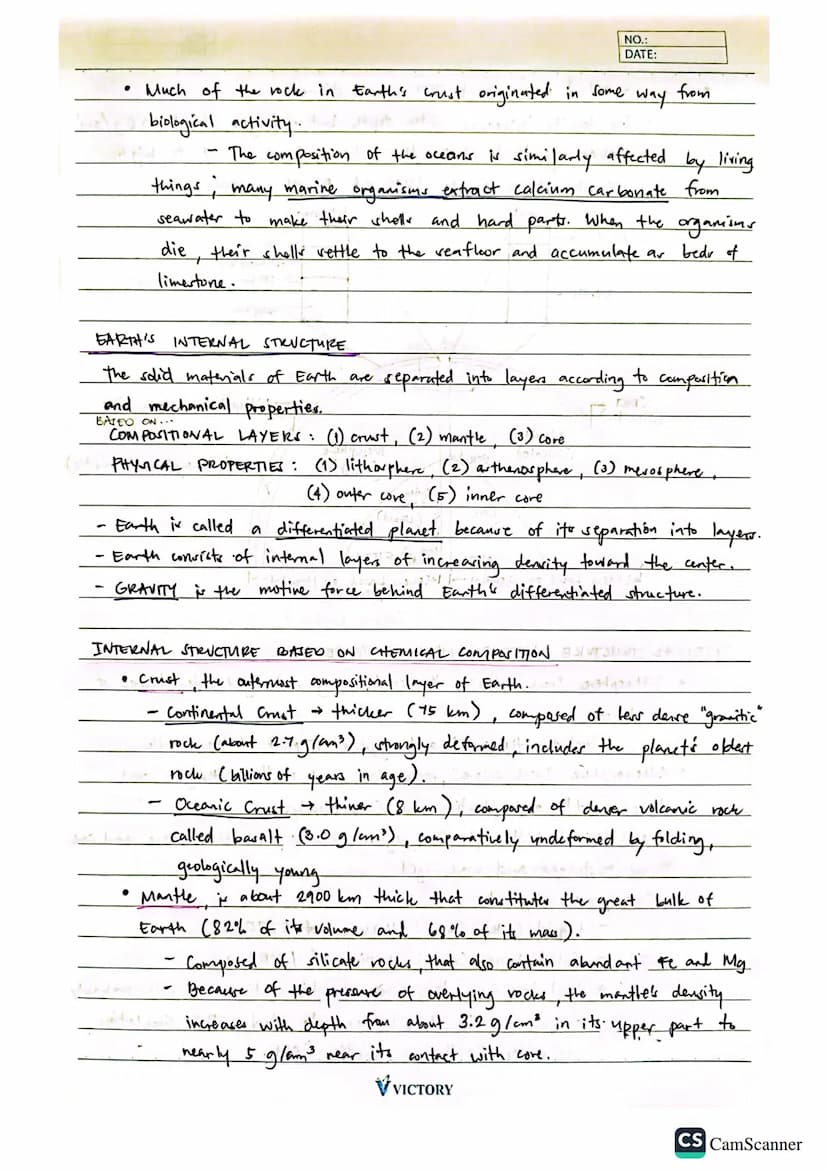 NO.:
DATE:
• Much of the rock in Earth's crust originated in some way from
biological activity.
- The composition of the oceans is similarly affected by living
things; many marine organisms extract calcium carbonate from
seawater to make their shells and hard parts. When the organisms
die, their shells settle to the seafloor and accumulate as beds of
limestone.
EARTH'S INTERNAL STRUCTURE
The solid materials of Earth are separated into layers according to composition
and mechanical properties.
BASED ON...
COMPOSITIONAL LAYERS: (1) crust, (2) mantle, (3) core
PHYSICAL PROPERTIES: (1) lithosphere, (2) asthenosphere, (3) mesosphere,
(4) outer core, (5) inner core
- Earth is called a differentiated planet because of its separation into layers.
- Earth consists of internal layers of increasing density toward the center.
- GRAVITY is the motive force behind Earth's differentiated structure.
INTERNAL STRUCTURE BASED ON CHEMICAL COMPOSITION
• Crust, the outermost compositional layer of Earth.
- Continental Crust → thicker (75 km), composed of less dense "granitic"
rock (about 2.7 g/cm³), strongly deformed, includes the planet's oldest
rock (billions of years in age).
- Oceanic Crust → thiner (8 km), composed of denser volcanic rock
called basalt (3.0 g/cm³), comparatively undeformed by folding,
geologically young
• Mantle, is about 2900 km thick that constitutes the great bulk of
Earth (82% of its volume and 68% of its mass).
- Composed of silicate rocks, that also contain abundant Fe and Mg
- Because of the pressure of overlying rocks, the mantle's density
increases with depth from about 3.2 g/cm³ in its upper part to
nearly 5 g/cm³ near its contact with core.
VICTORY
CS CamScanner